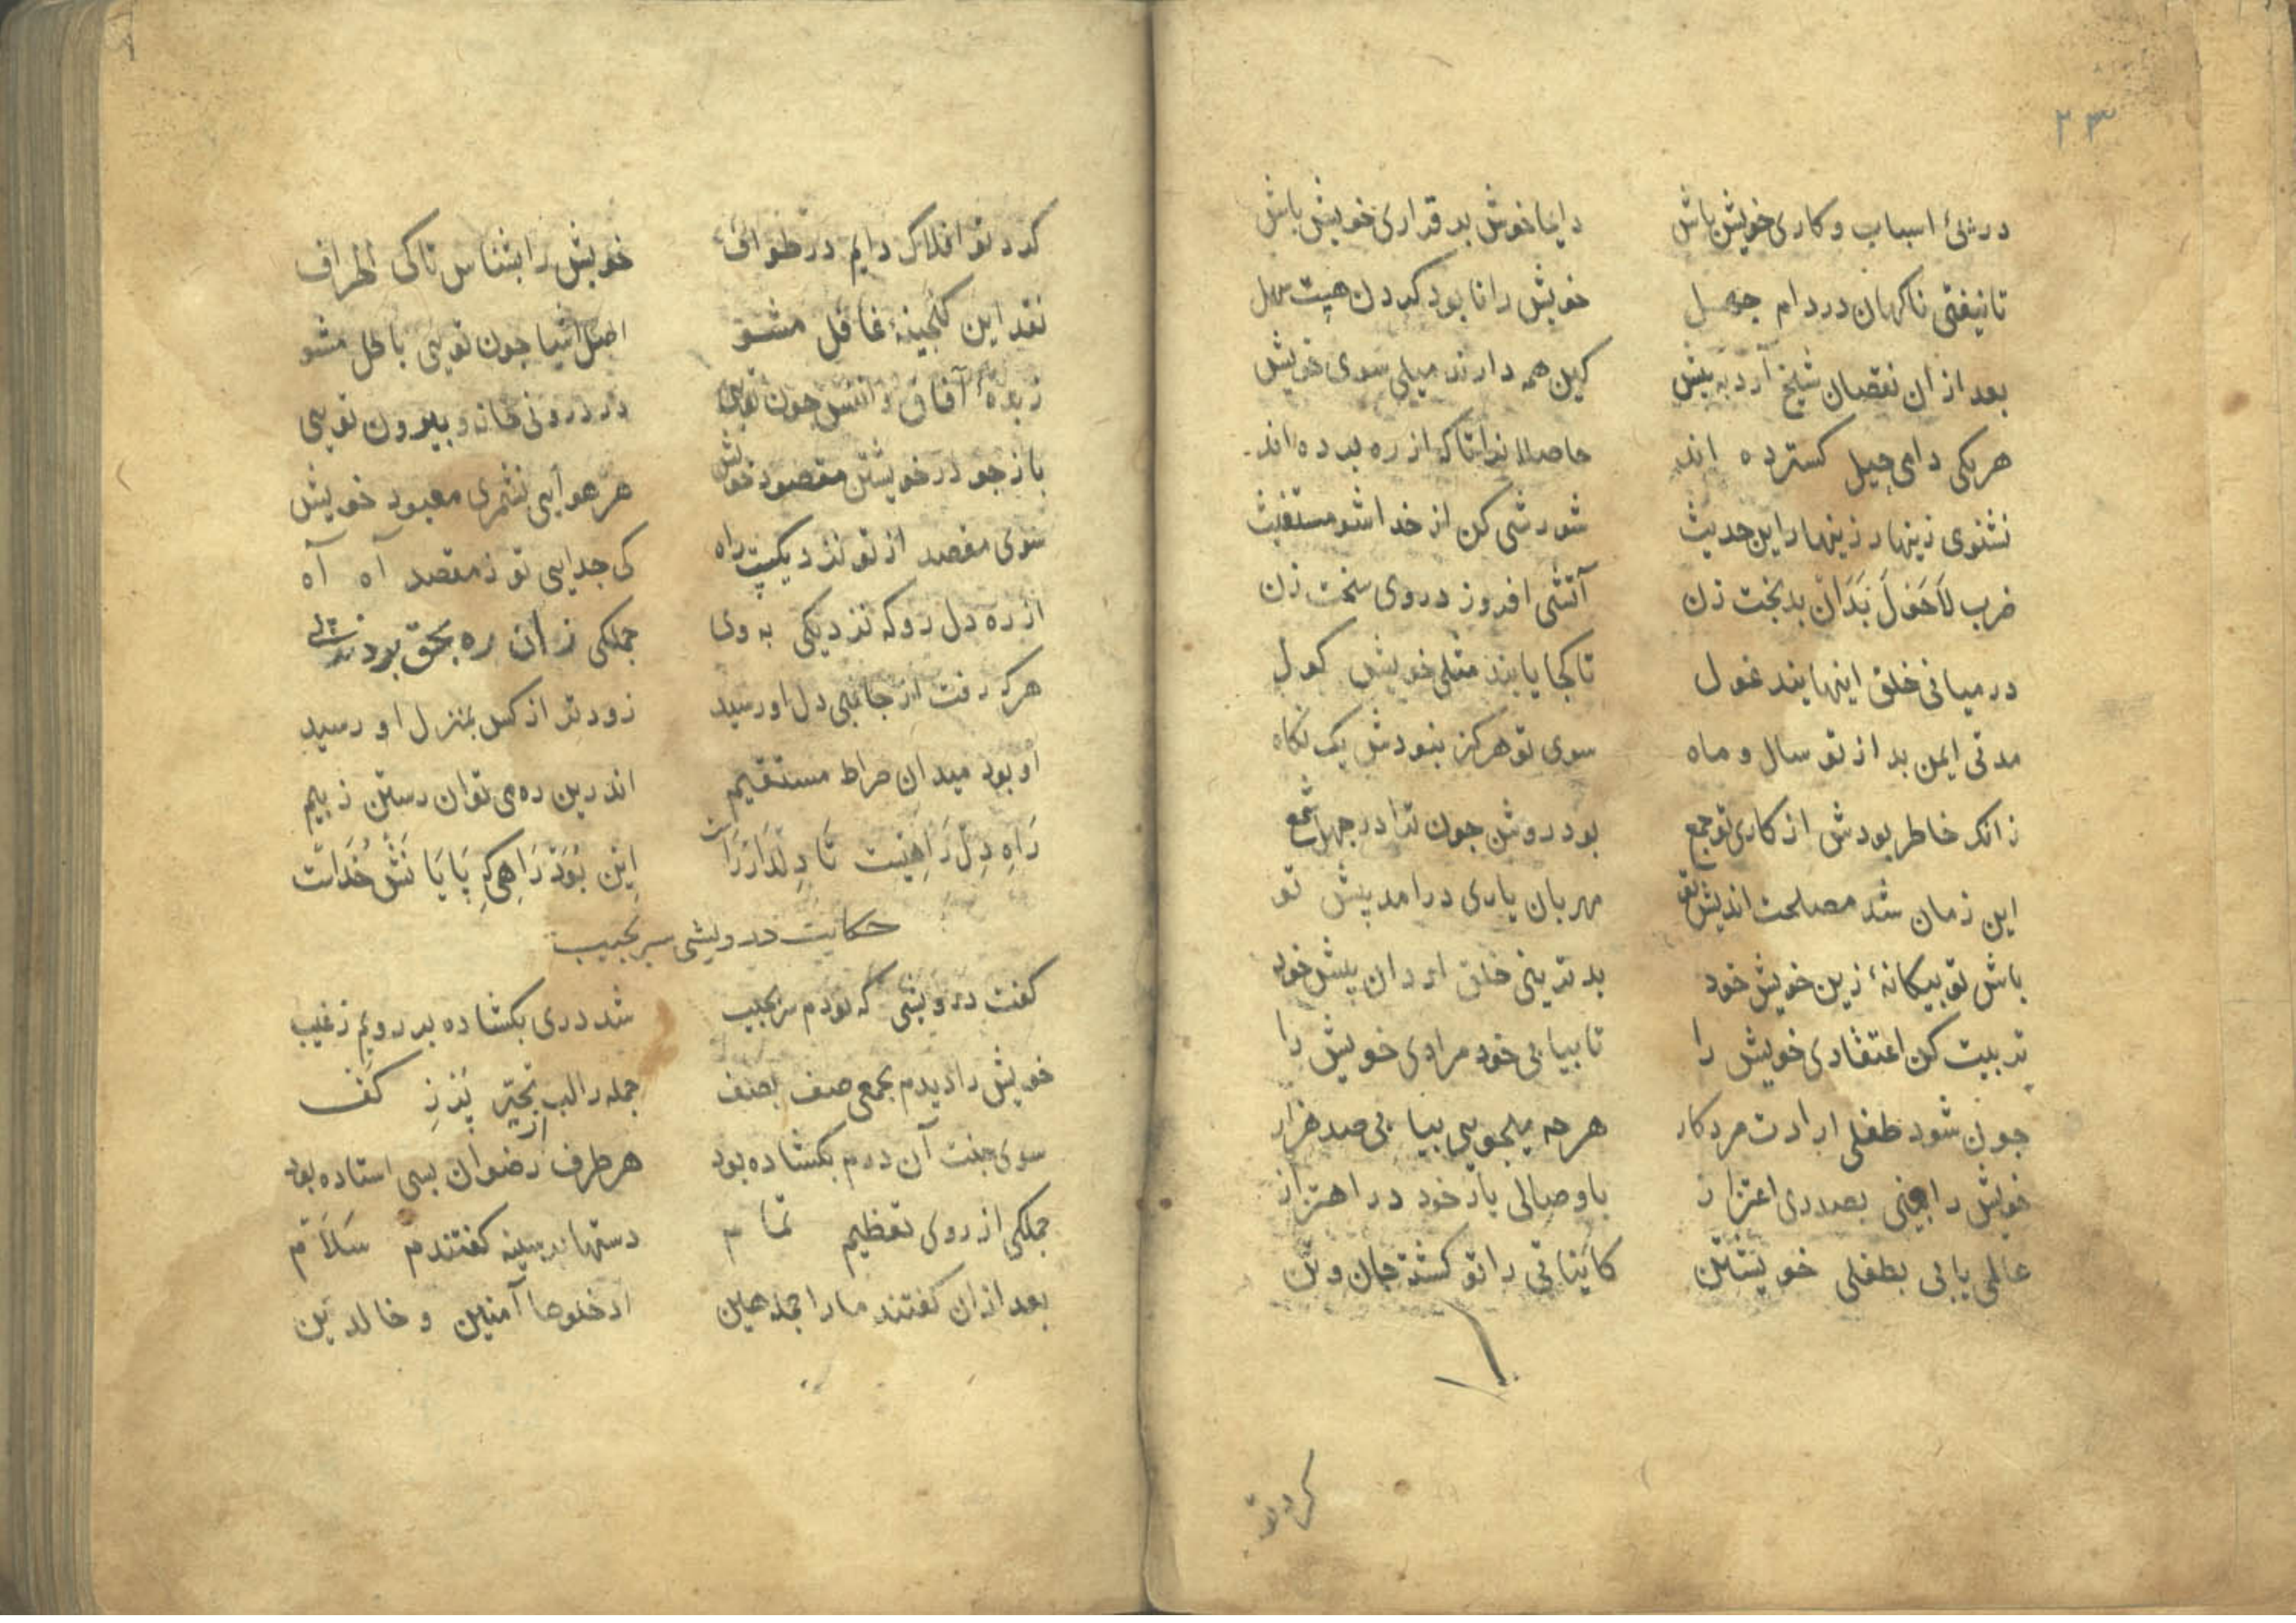 ٢٣
در پئ اسباب و کاری خویش باش دایما خوش بر قراری خویش باش
تا نیفتی ناکهان در دام جهل خویش را نابود کردن هیت سهل
بعد از ان نقصان شیخ آرد به پیش کین همه دارند میلی سوی خویش
هر یکی دامی حیل کسترده اند حاصلا از ره برده اند
نشنوی زینهار زینهار این حدیث شورشی کن از خدا شو مستغیث
ضرب لاحول بدان بدبخت زن آتشی افروز در وی سخت زن
در میانی خلق اینهایند غول تا کجا یابند مثلی خویش کول
مدتی ایمن بد از تو سال و ماه سوی تو هرکز نبودش یک نکاه
زانکه خاطر بودش از کاری تو جمع بود روشن جون ترا در جهل شمع
این زمان شد مصلحت اندیش تو مهربان یاری درامد پیش تو
باش تو بیکانهٔ زین خویش خود بدترینی خلق از دان پیش خود
تربیت کن اعتقادی خویش را تا بیابی خود مراوی خویش را
جون شود طفلی ارادت مرد کار هر چه میجویی بیابی صد هزار
خویش را بینی بصدری اعتزاز با وصالی یار خود در اهتزاز
عالمی یابی بطفلی خویشتن کایناتی را تو کشته جان و تن
کرد تو
کرد تو افلاک دایم در طواف خویش را بشناس تا کی اطراف
نقد این کنجینهٔ غافل مشو اصل اشیا جون تویی باطل مشو
زبدهٔ آفاق و انفس جون تویی در درونی خانه و بیرون تویی
باز جو در خویشتن مقصود خویش هر هوایی نشمری معبود خویش
سوی مقصد از تو نزدیکیت راه کی جدایی تو ز مقصد آه آه
از ره دل رو که نزدیکی به وی جملکی زان ره بحق بردند پی
هر که رفت از جانبی دل او رسید زودتر از کس بمنزل او رسید
او بود میدان صراط مستقیم اندرین ره می توان رستن ز بیم
راه دل راهیست تا دلدار راست این بود راهی که پایانش خداست
حکایت درویشی سر بجیب
کفت درویشی که بودم سر بجیب شد دری بکشاده بر رویم ز غیب
خویش را دیدم بجمعی صف بصف جمله را لب بر کف
سوی جنت آن درم بکشاده بود هر طرف از رضوان بسی استاده بود
جملکی از روی تعظیم تمام دستها بر سینه کفتندم سلام
بعد از ان کفتند ما را جمله هین ادخلوها آمنین و خالدین